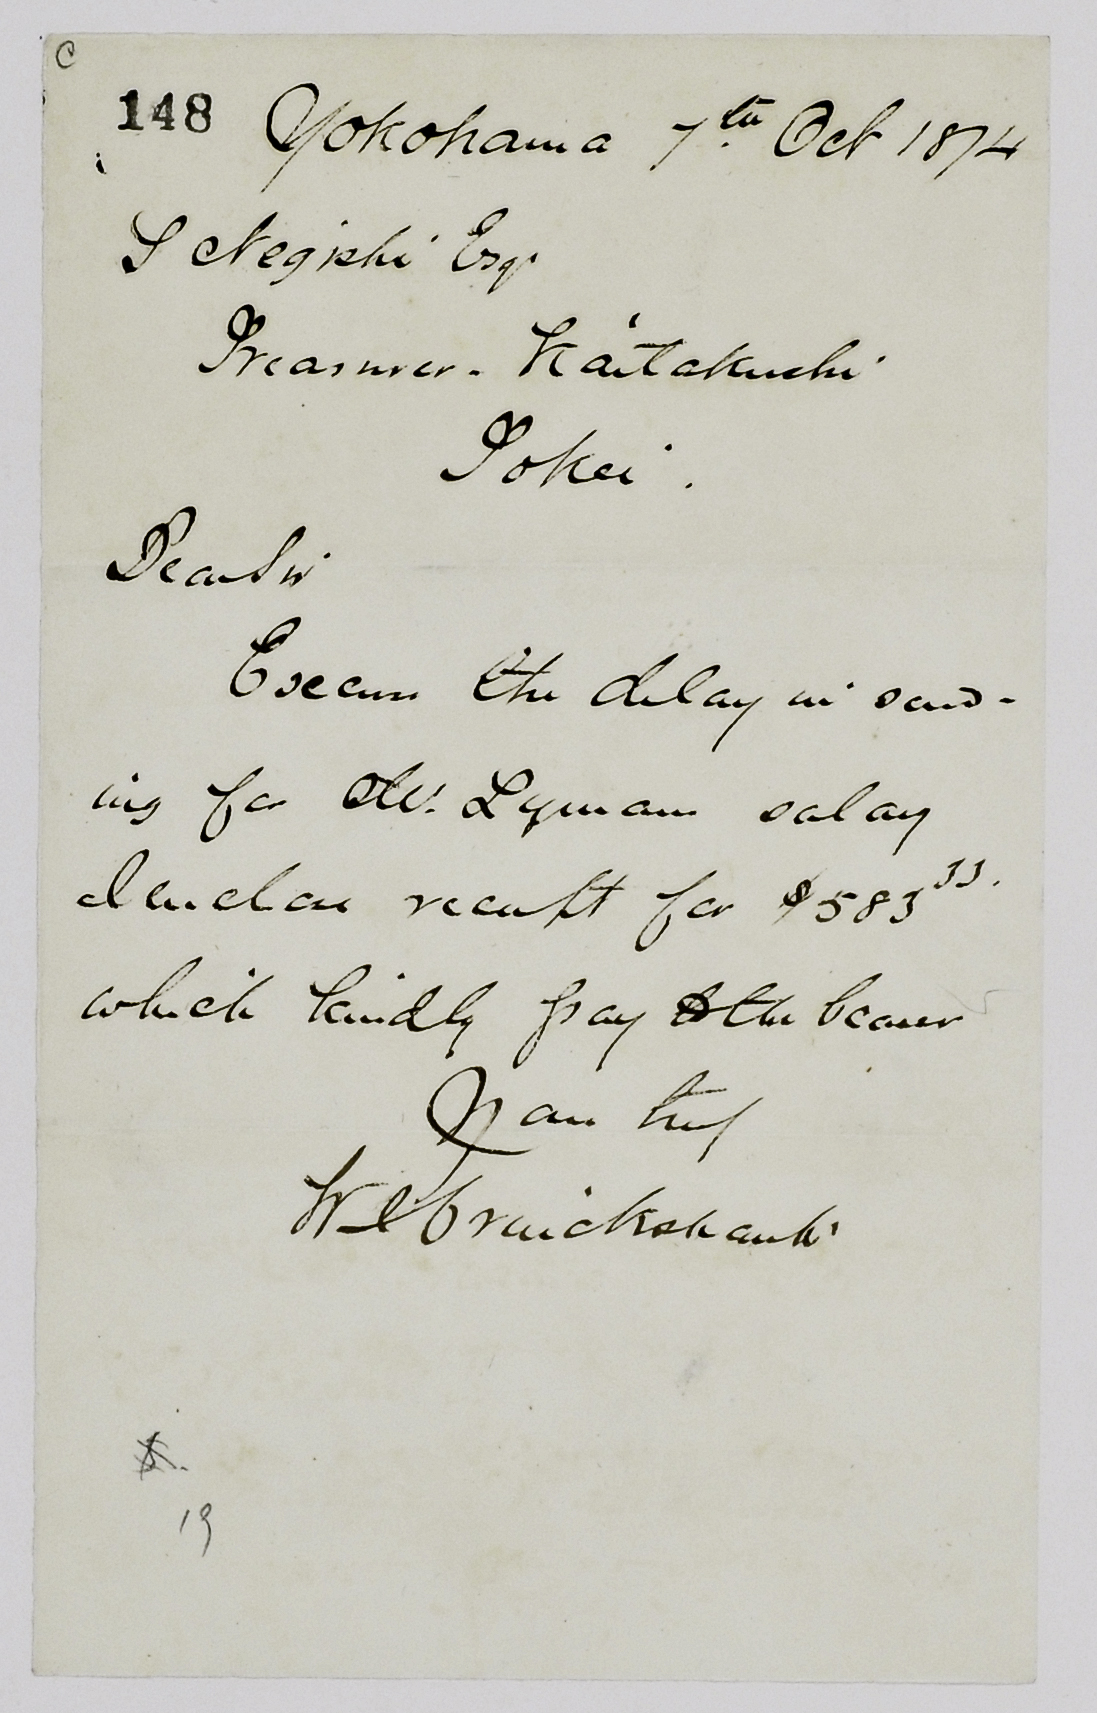 C
148 Yokohama 7th Oct 1874
S Negishi Esqr
Treasurer - Kaitakushi
Tokei.
Dear Sir
Excuse the delay in send-
ing for Mr. Lyman salary
I enclose receipt for $583 33.
which kindly pay to the bearer
Yours truly
W J Cruickshank
19